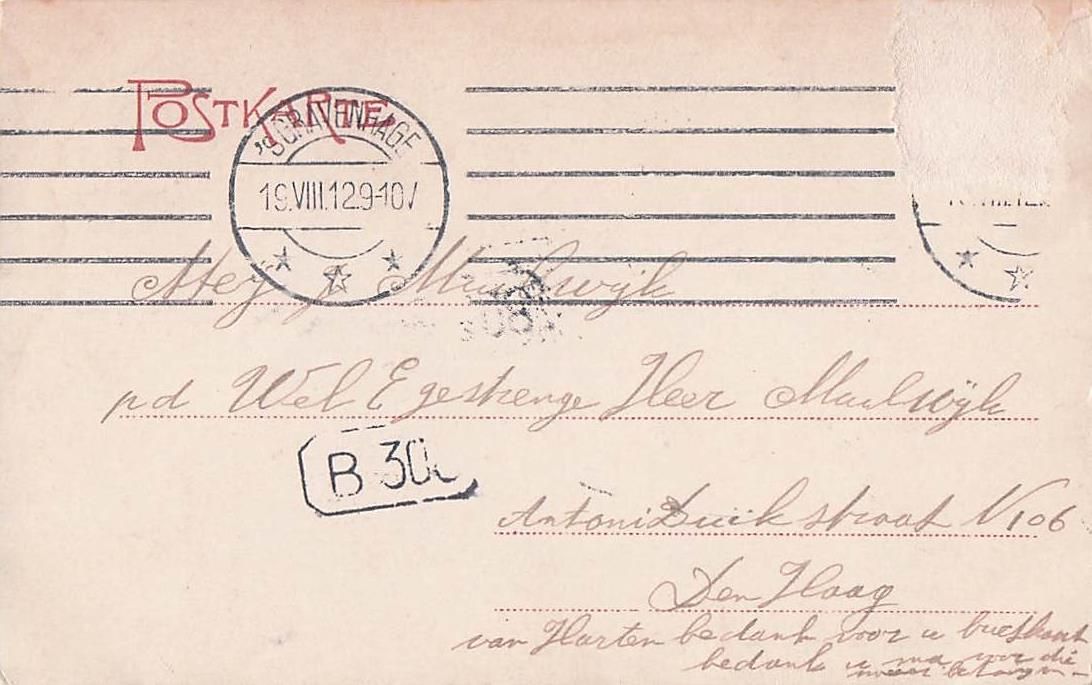 POSTKARTE
'SGRAVENHAGE
19.VIII.12.9-10V
Mej J Muulwijk
p/d Wel Egestrenge Heer Muulwijk
B 300
AntoniDuikstraat N 106
Den Haag
van Harten bedank voor u briefkaart
bedank u ma voor die